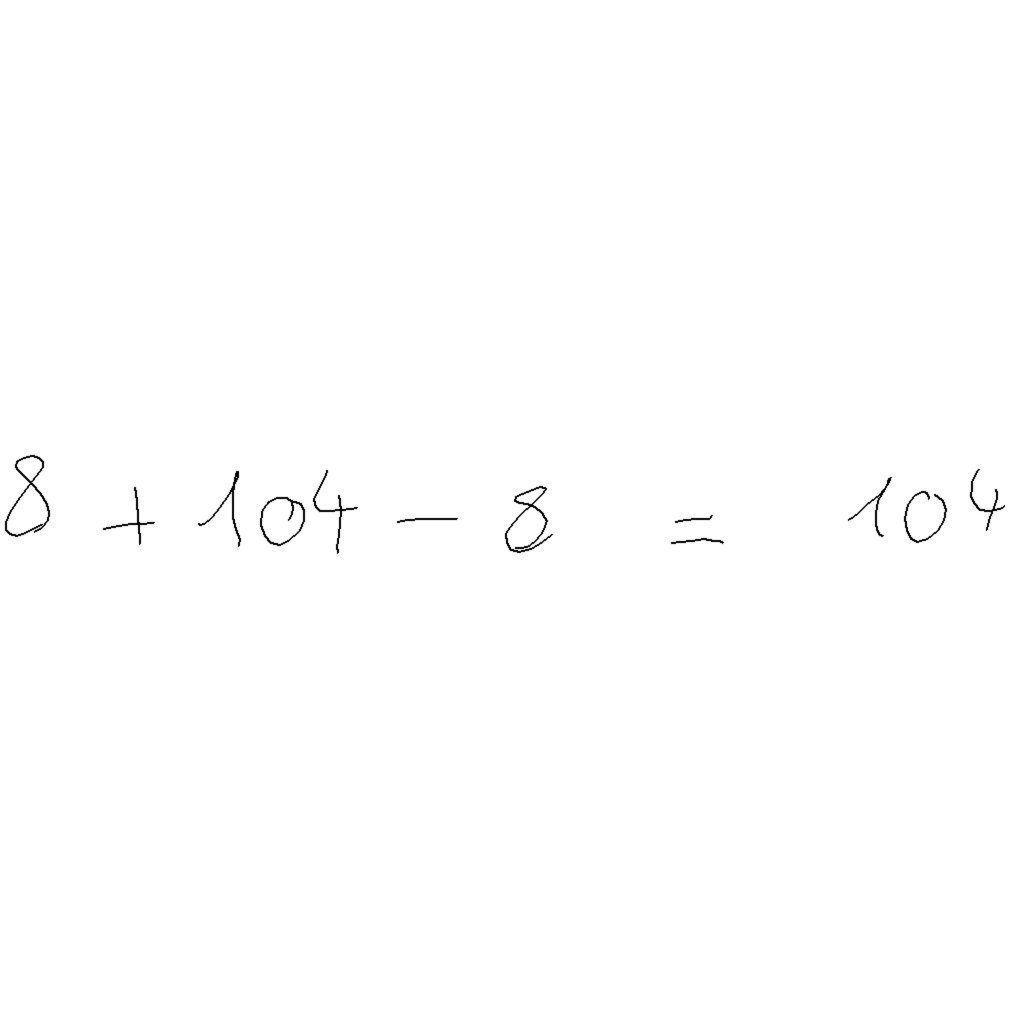 8 + 104 - 8 = 104